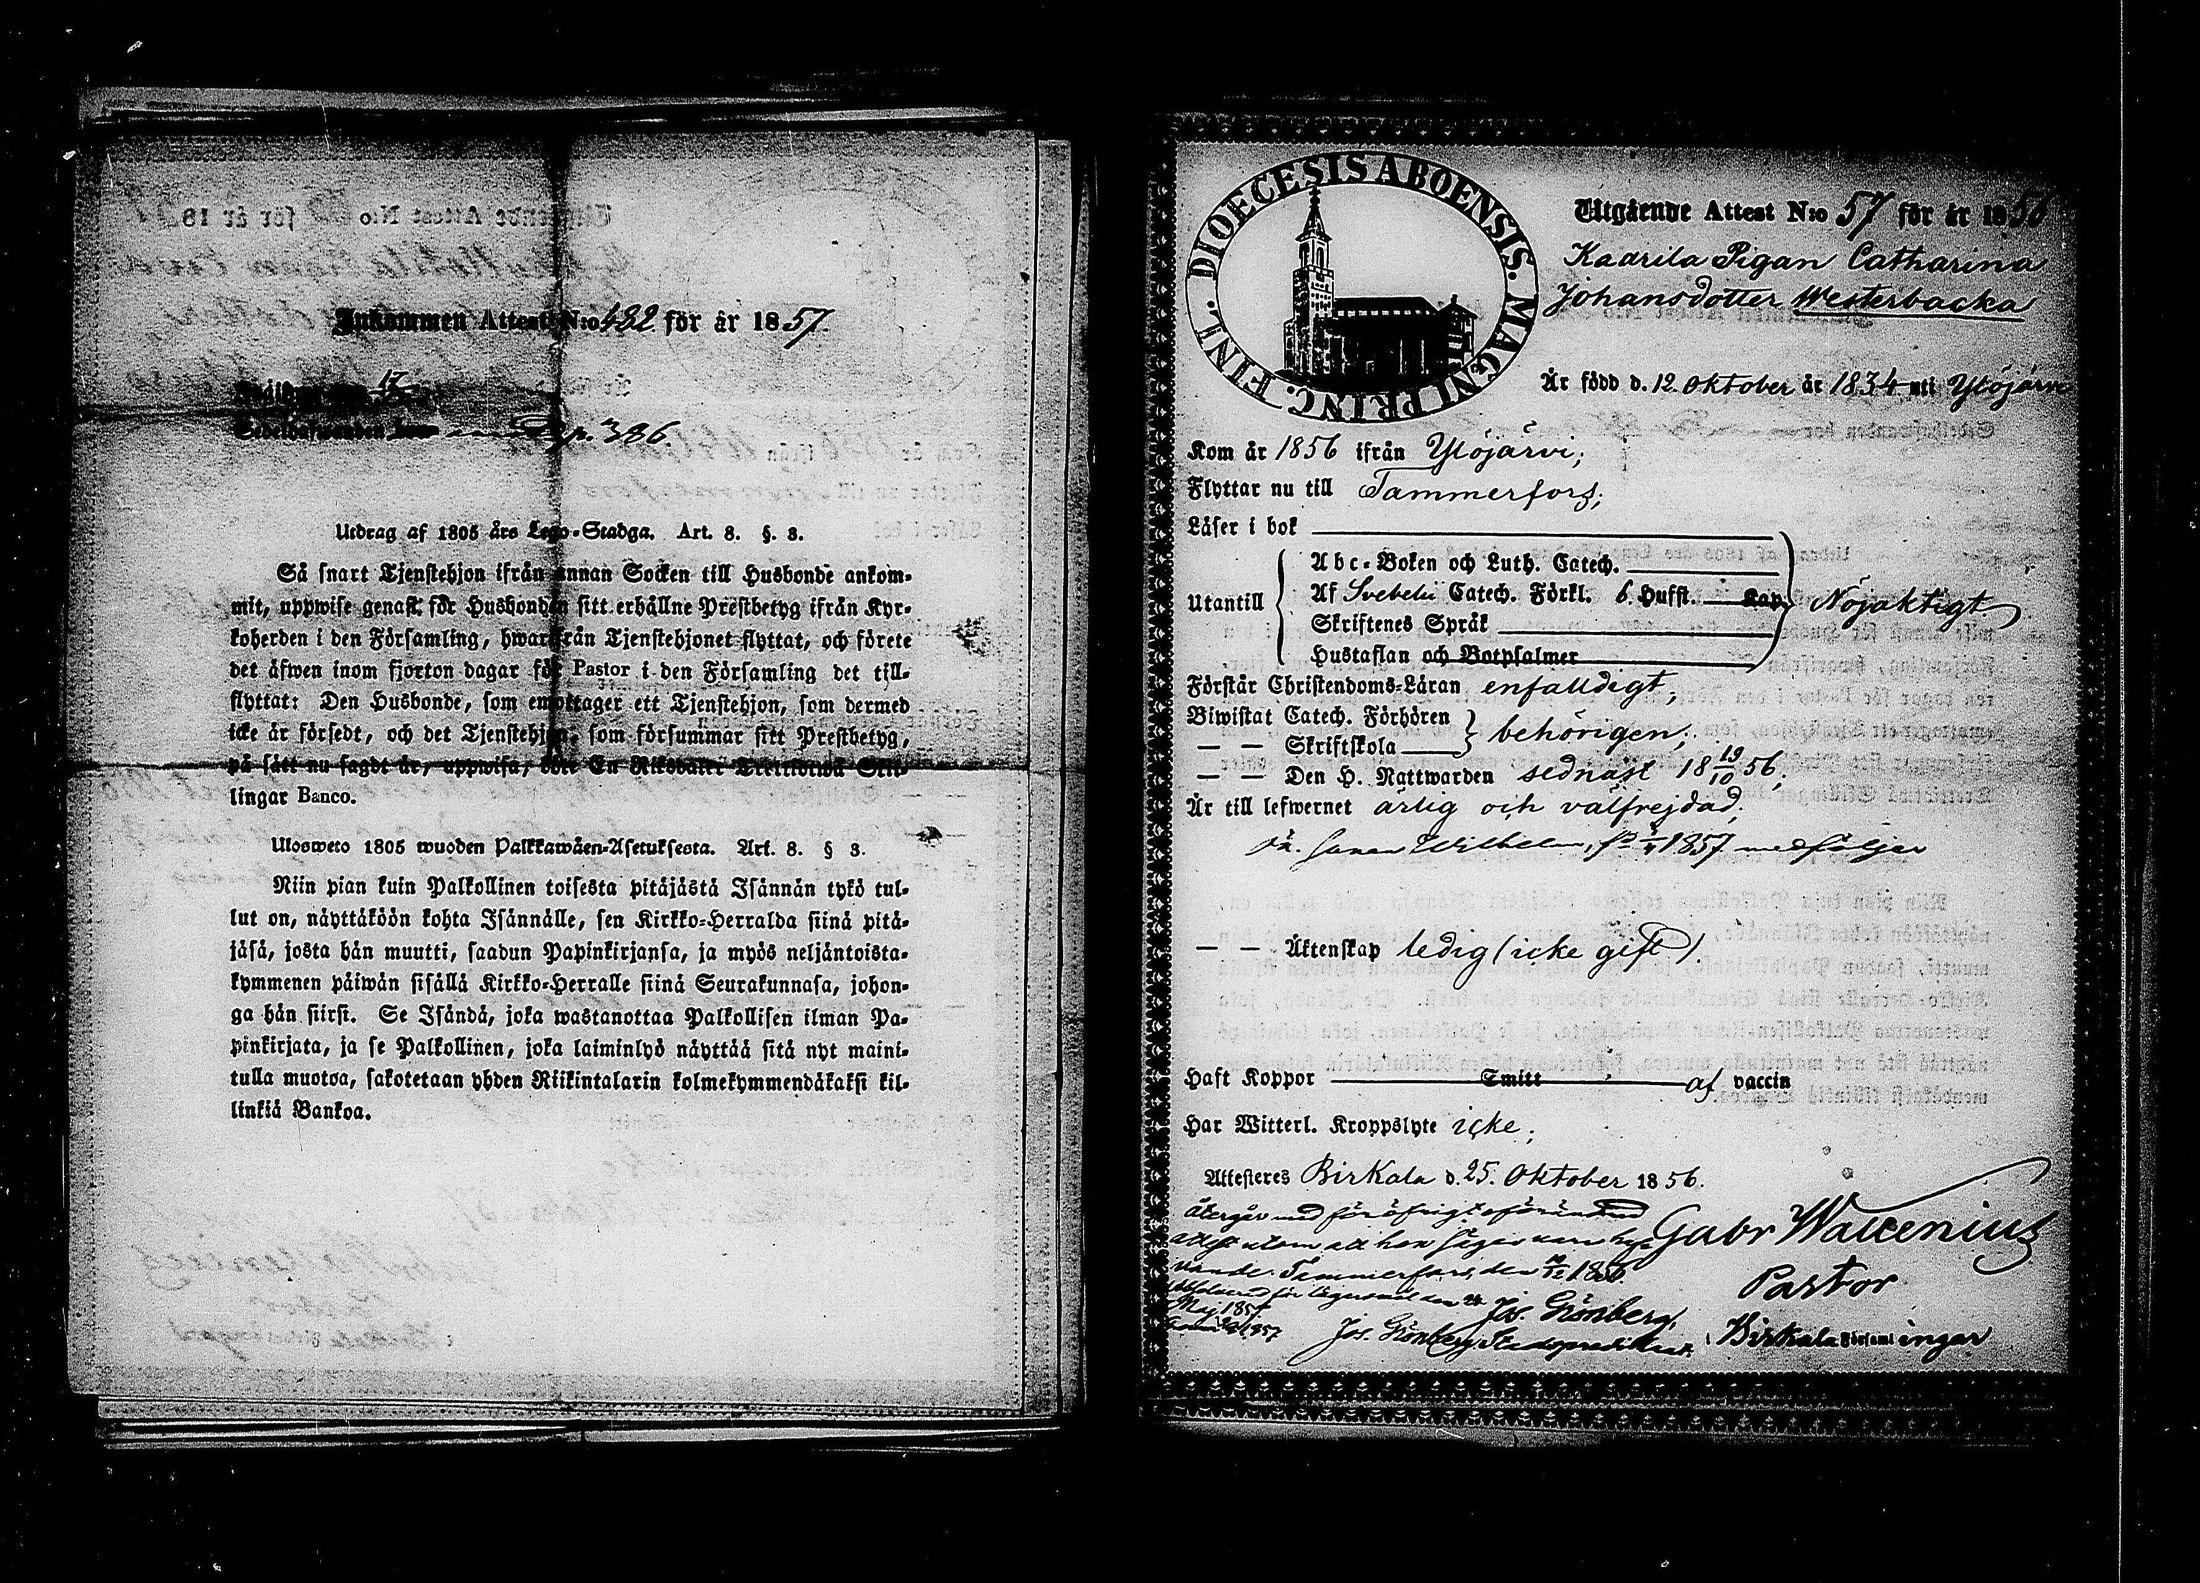 Inkommen Attest N:o 482 för år 1857.
17
p. 386.
Utdrag af 1805 års Lego-Stadga. Art. 8. §. 8.
Så snart Tjenstehjon ifrån annan Socken till Husbonde ankom-
mit, uppwise genast för Husbonden sitt erhållne Prestbetyg ifrån Kyr-
koherden i den Församling, hwarifrån Tjenstehjonet flyttat, och förete
det äfwen inom fjorton dagar för Pastor i den Församling det till-
flyttat: Den Husbonde, som emottager ett Tjenstehjon, som dermed
icke är försedt, och det Tjenstehjon, som försummar sitt Prestbetyg,
på sätt nu sagdt är, uppwisa, böte En Riksdaler Trettiotwå Skil-
lingar Banco.
Ulosweto 1805 wuoden Palkkawäen-Asetuksesta. Art. 8. § 8.
Niin pian kuin Palkollinen toisesta pitäjästä Isännän tykö tul-
lut on, näyttäköön kohta Isännälle, sen Kirkko-Herralda siinä pitä-
jäsä, josta hän muutti, saadun Papinkirjansa, ja myös neljäntoista-
kymmenen päiwän sisällä Kirkko-Herralle siinä Seurakunnasa, johon-
ga hän siirsi. Se Isändä, joka wastanottaa Palkollisen ilman Pa-
pinkirjata, ja se Palkollinen, joka laiminlyö näyttää sitä nyt maini-
tulla muotoa, sakotetaan yhden Riikintalarin kolmekymmendäkaksi kil-
linkiä Bankoa.
DIOECESIS ABOENSIS. MAGNI PRINC. FINL.
Utgående Attest N:o 57 för år 1856
Kaarila Pigan Catharina
Johansdotter Westerbacka
Är född d. 12 Oktober år 1834 uti Ylöjärvi
Kom år 1856 ifrån Ylöjärvi;
Flyttar nu till Tammerfors;
Läser i bok
Abc-Boken och Luth. Catech.
Utantill Af Svebelii Catech. Förkl. 6. Hufst. Kap. Nöjaktigt
Skriftenes Språk
Hustaflan och Botpsalmer
Förstår Christendoms-Läran enfalldigt;
Biwistat Catech. Förhören behörigen;
— — Skriftskola
— — Den H. Nattwarden sednast 18 19/10 56;
Är till lefwernet ärlig och välfrejdad;
Wilhelm, 1857 medföljer
— — Äktenskap ledig (icke gift).
Haft Koppor Smitt af vaccin
Har Witterl. Kroppslyte icke;
Attesteres Birkala d. 25. Oktober 1856.
Återgår med för öfrigt oförändrad
attest utom att hon säger vara
Tammerfors den 1856 Gabr Wallenius
Pastor
Maj 1857 Jos. Grönberg,
Jos. Grönberg, Stadspredikant. i Birkala Församlingar